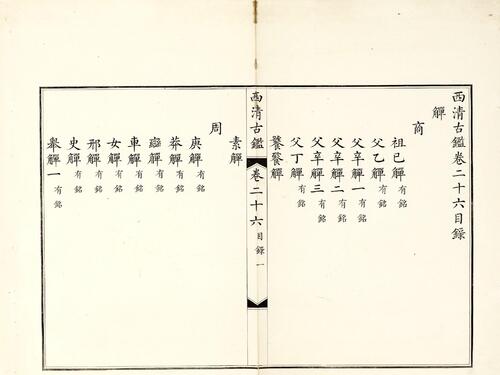 西清古鑑卷二十六目錄
觶
商
祖己觶有銘
父乙觶有銘
父辛觶一有銘
父辛觶二有銘
父辛觶三有銘
父丁觶有銘
饕餮觶
西清古鑑 卷二十六目錄 一
素觶
周
庚觶有銘
莽觶有銘
觶有銘
車觶有銘
女觶有銘
邢觶有銘
史觶有銘
舉觶一有銘